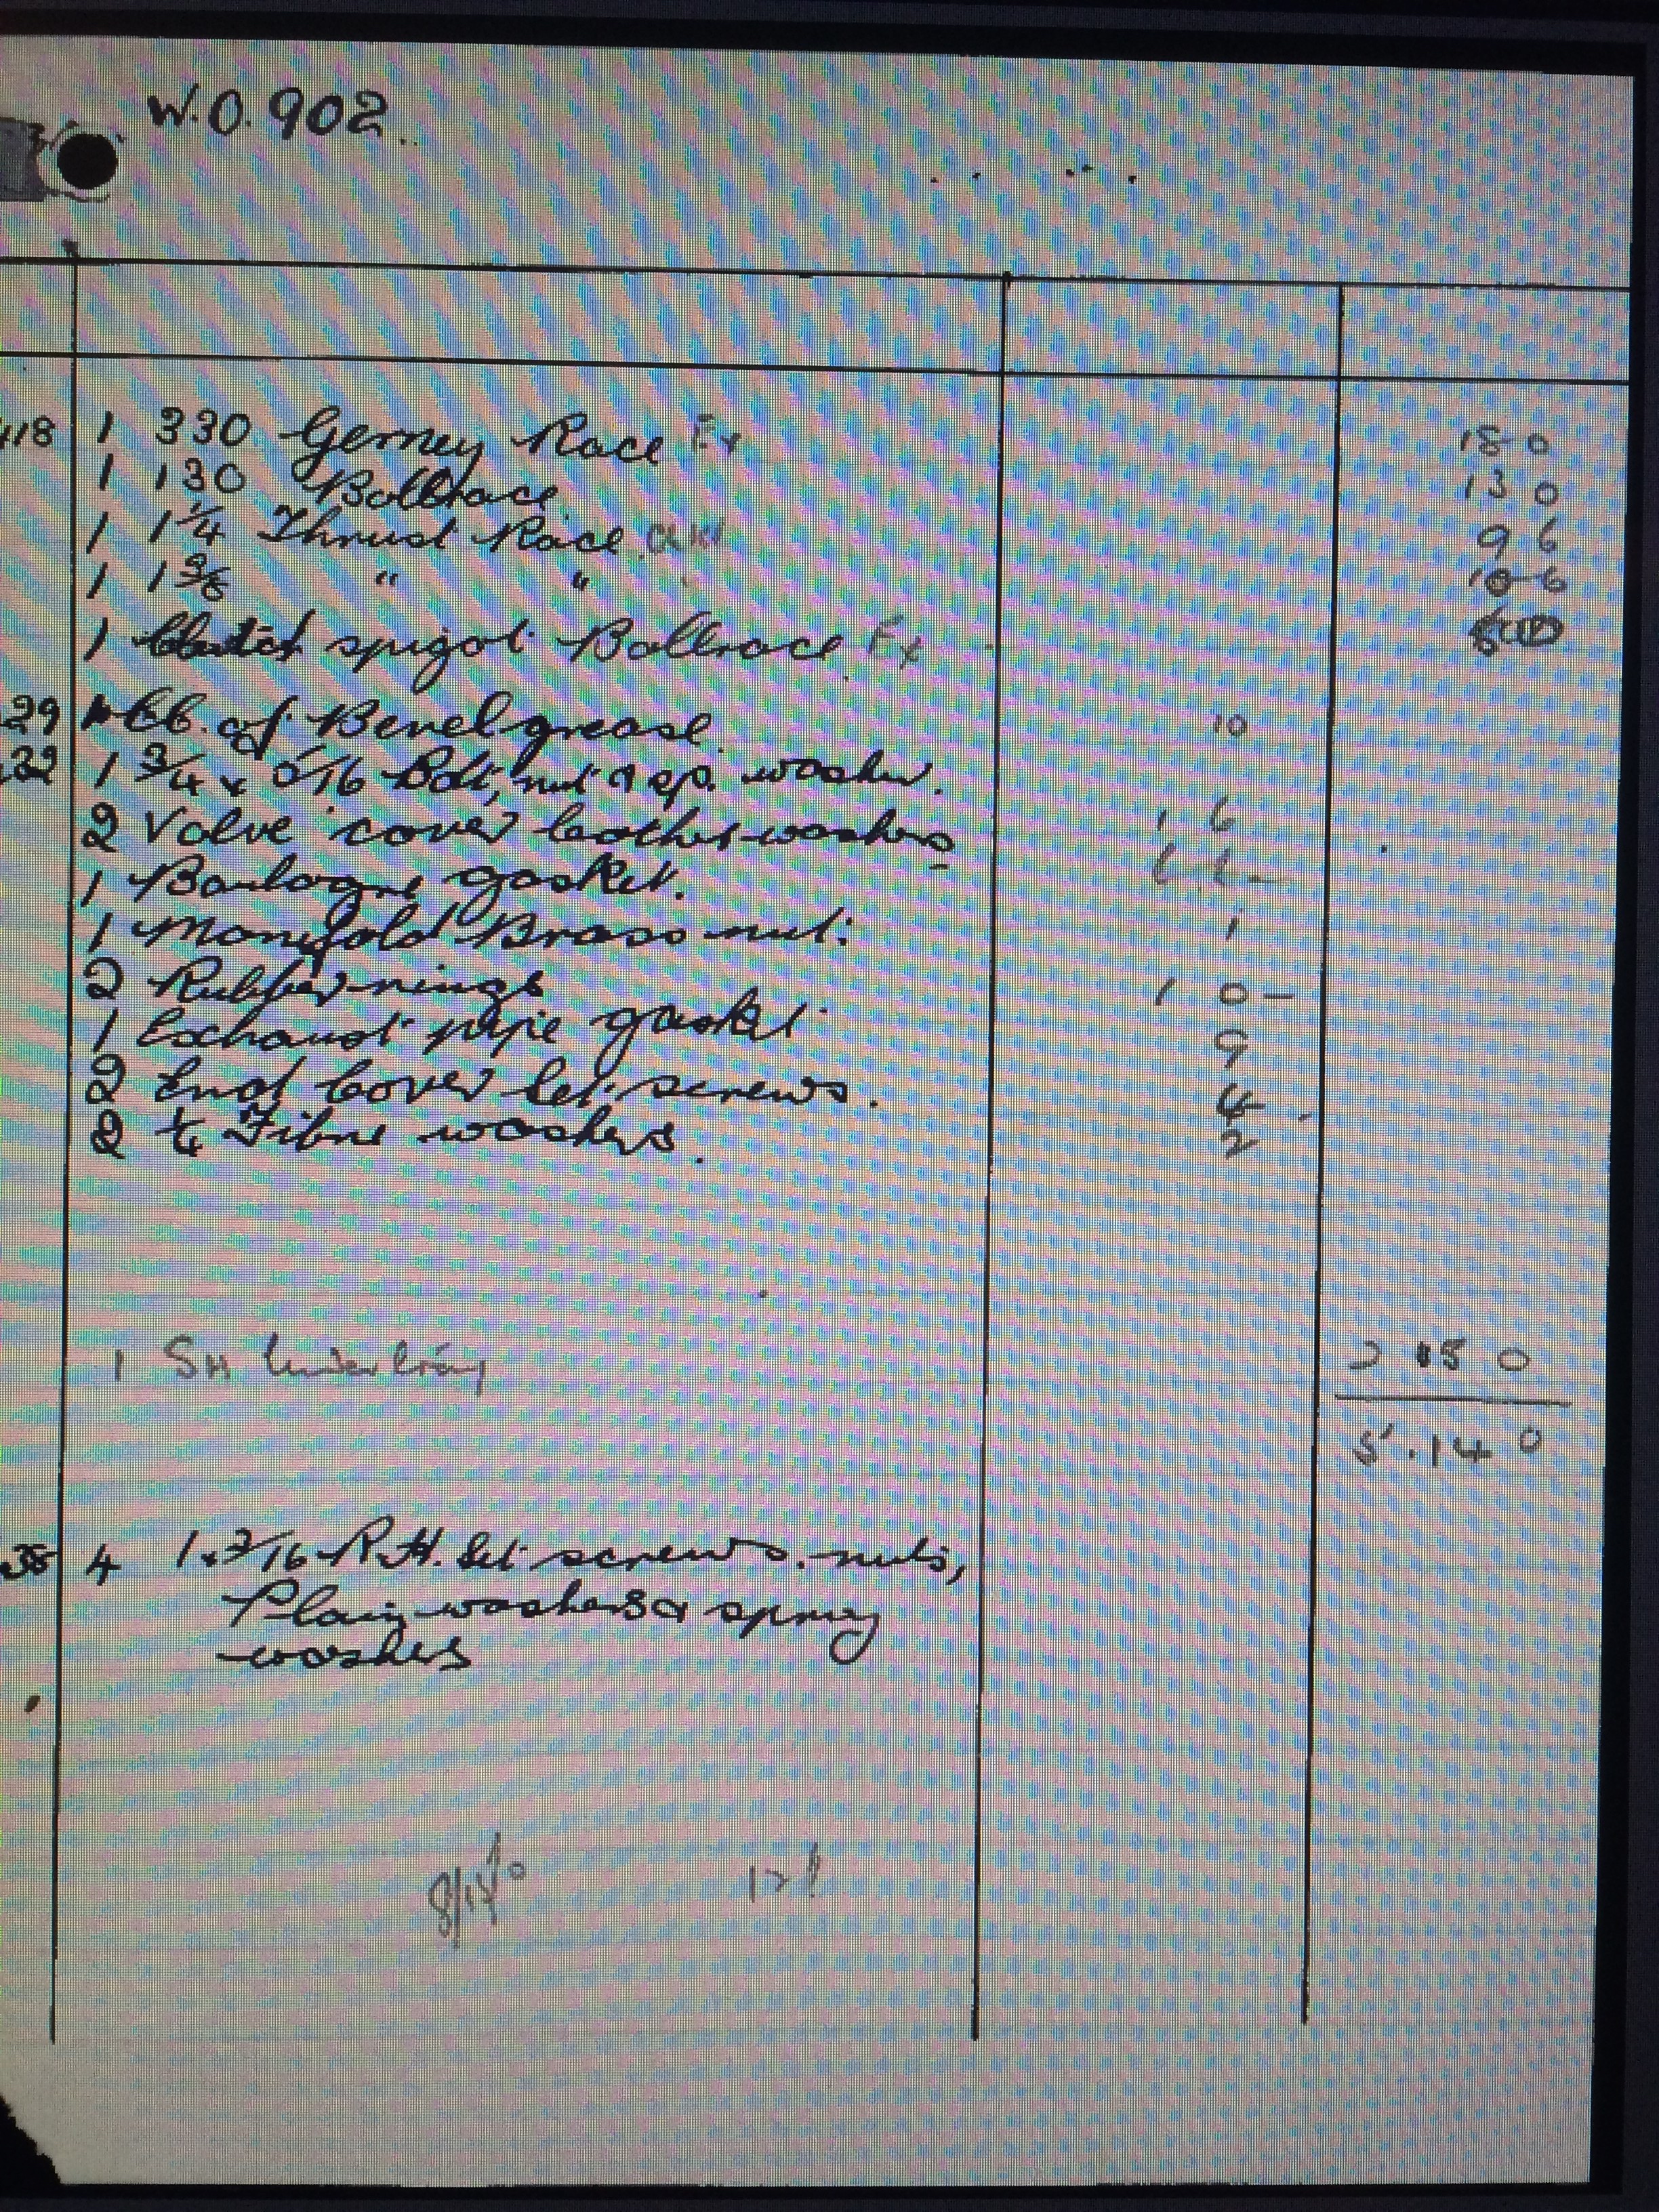 W.O. 902..
118 1 330 Gerney Race Ex 18 0
1 130 Ballrace 13 0
1 1 1/4 Thrust Race 9 6
1 1 3/8 " " 10 6
1 Clutch spigot Ballrace Ex
29 of Bevelgrease. 10
32 1 3/4 x 5/16 Bolt, nut & sp. washer.
2 Valve cover leather washers 1 6
1 Boulogne gasket.
1 Manifold Brass nut. 1
2 Rubber rings 1 0 –
1 Exhaust pipe gasket 9
2 End Cover set screws. 4
2 Fibre washers. 2
1 SH 2 15 0
5.14 0
35 4 1 x 3/16 R.H. Set screws. nuts,
Plain washers & spring
washers